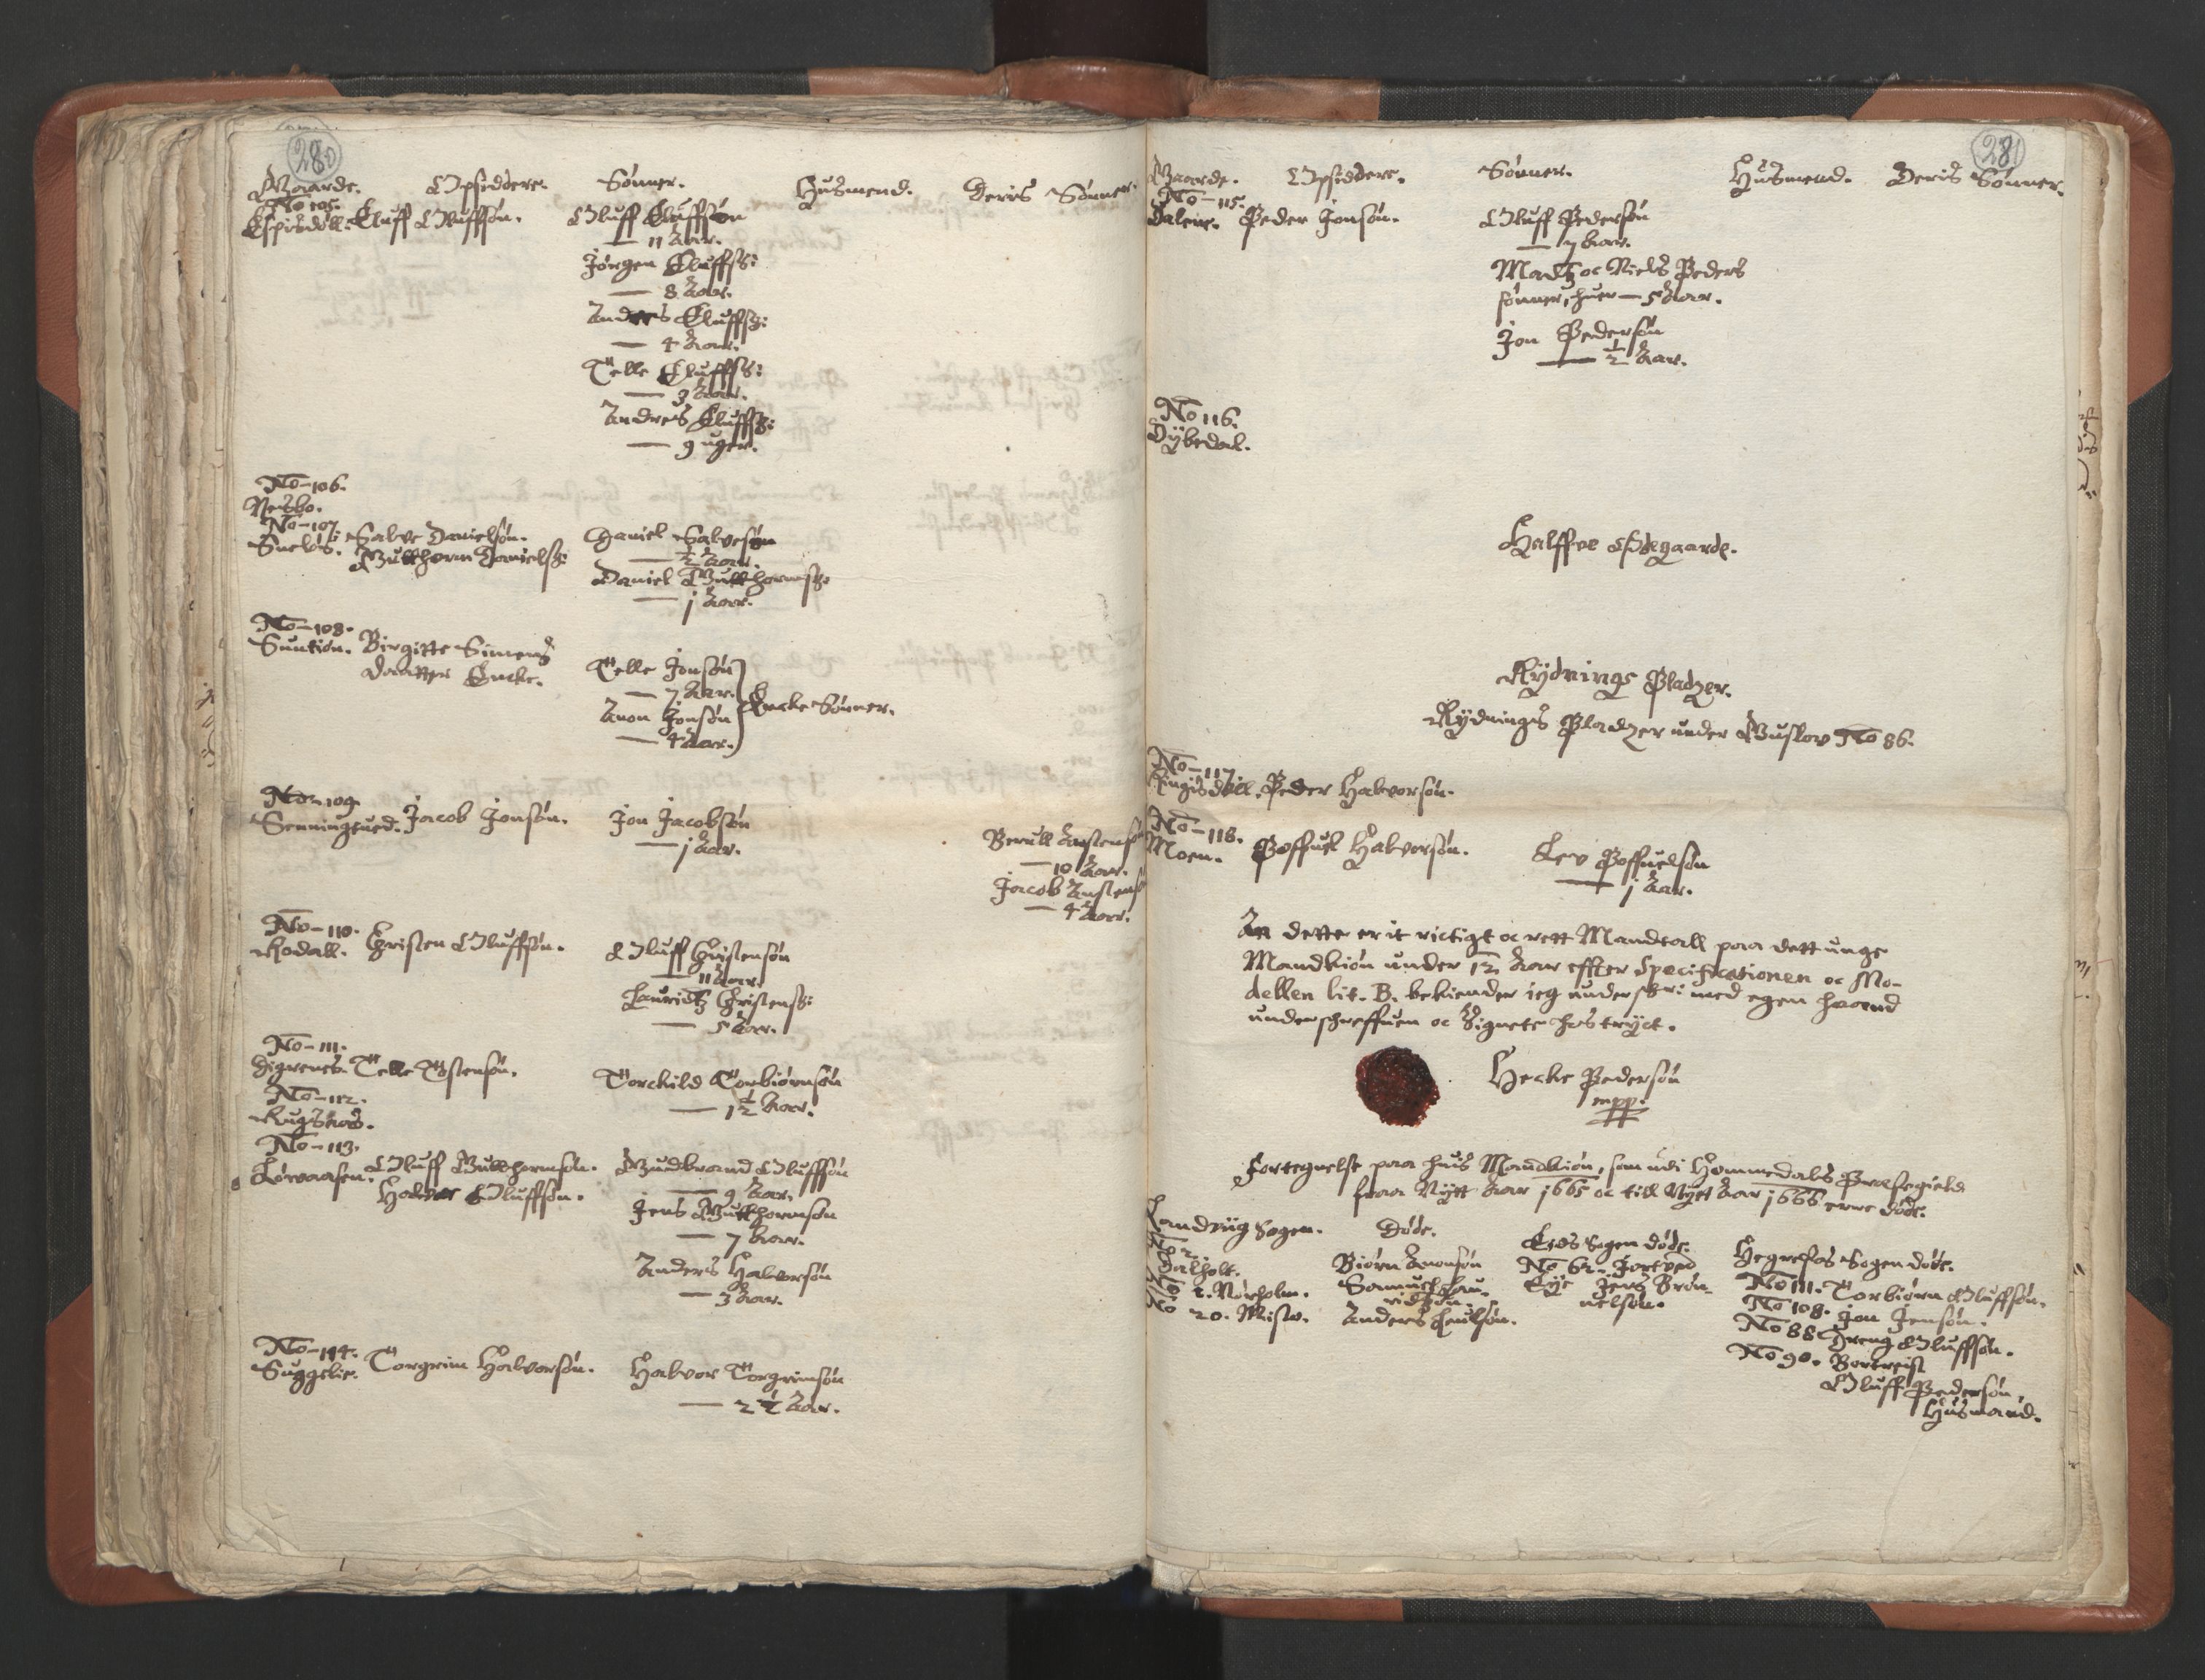 280
Gaarde. Opsiddere. Sønner. Husmend. Deris Sønner.
No 105.
Espisdall. Eluff Oluffsøn. Oluff Eluffsøn
— 11 Aar.
Jørgen Eluffs:
— 8 Aar.
Anders Eluffs:
— 4 Aar.
Telle Eluffs:
— 3 Aar.
Andres Eluffs:
— 9 uger.
No – 106.
Nesbo.
No – 107.
Salve Danielsøn. Daniel Salvesøn
— ½ Aar.
Gutthorm Daniels: Daniel Gutthorms:
— 1 Aar.
No – 108.
Suntiøn. Birgitte Simens
daatter Encke. Telle Jonsøn
— 7 Aar.
Anon Jonsøn Encke Sønner.
— 4 Aar.
No – 109.
Senningeued. Jacob Jonsøn. Jon Jacobsøn
— 1 Aar.
Berull
— 10 Aar.
Jacob
— 4 Aar.
No – 110.
Rodall. Christen Oluffsøn. Oluff Christensøn
— 11 Aar.
Lauridtz Christens:
— 5 Aar.
No – 111.
Digernes. Telle Tostensøn. Torchild Torbiørnsøn
— 1½ Aar.
No – 112.
Rugsaas.
No – 113.
Løvaasen. Oluff Gutthormsøn. Gudbrand Oluffsøn
— 9 Aar.
Halvor Oluffsøn. Jens Gutthormsøn
— 7 Aar.
Anders Halvorsøn
— 3 Aar.
No – 114.
Suggelie. Torgrim Halvorsøn. Halvor Torgrimsøn
— 2½ Aar.
281
Gaarde. Opsiddere. Sønner. Husmend. Deris Sønner.
No – 115.
Dalene. Peder Jonsøn. Oluff Pedersøn
— 7 Aar.
Madtz oc Niels Peders
sønner, huer — 5 Aar.
Jon Pedersøn
— ½ Aar.
No 116.
Dybedal.
Halffve Ødegaarde.
Rydnings Pladzer.
Rydnings Pladzer under No 86.
No – 117.
Ringisdall. Peder Halvorsøn.
No – 118.
Moen. Poffuel Halvorsøn. Lev Poffuelsøn
— 1 Aar.
At dette er it rictigt oc rett Mandtall paa dett unge
Mandkiøn under 12 Aar effter Specificationen oc Mo-
dellen lit. B. bekiender ieg underschr: med egen haand
underschreffuen oc Signete hos tryct.
Hecke Pedersøn
mpp.
Fortegnelse paa huis Mandkiøn, som udi Hommedals Præstegield
fraa Nytt Aar 1665 oc till Nytt Aar 1666 erre døde.
Landvig Sogen. Døde.
No 2.
Dalholt. Biørn Anonsøn
No 1. Nørholm. Samuel Lau-
ridsøn.
No 20. Anders Paulsøn.
Eides Sogen døde.
No 62. Jortved
Eye Jens Brøn-
nelsøn.
Hegrefos Sogen døde.
No 111. Torbiørn Oluffsøn.
No 108. Jon Jensøn.
No 88 Dreng Oluffsøn.
No 90. Bortreist
Oluff Pedersøn,
Husmand.